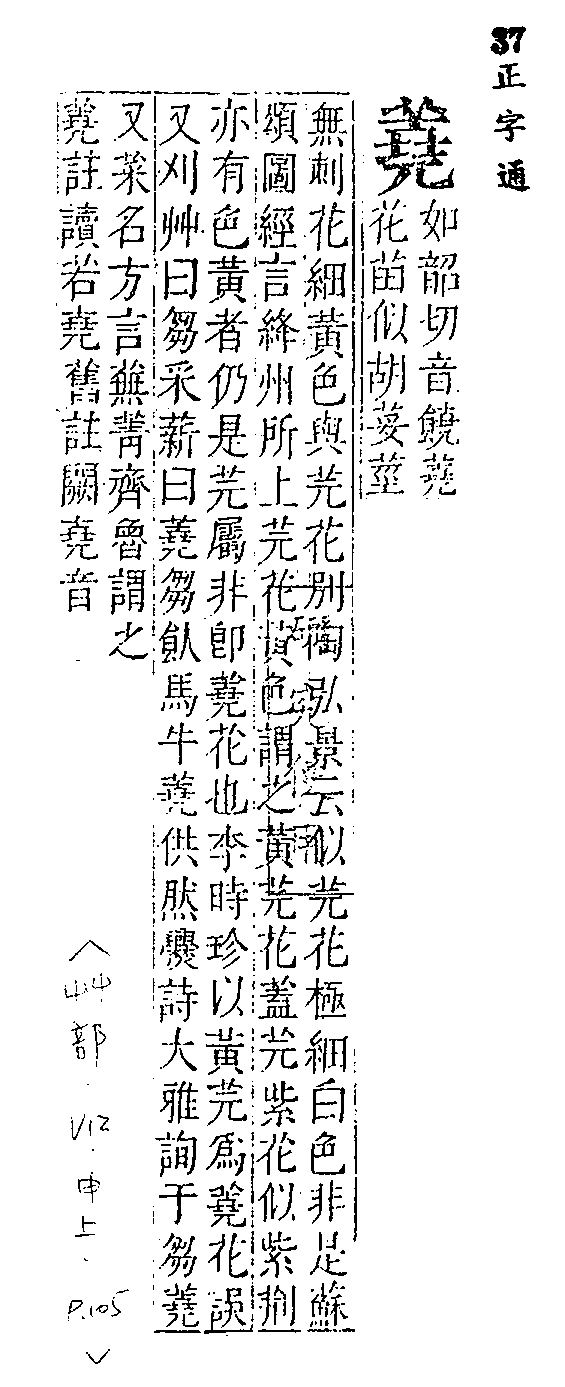 37
正字通
蕘
如韶切音饒蕘
花苗似胡荽莖
無刺花細黃色與芫花別陶弘景云似芫花極細白色非是蘇
頌圖經言絳州所上芫花黃色謂之黃芫花蓋芫紫花似紫荊
亦有色黃者仍是芫屬非卽蕘花也李時珍以黃芫爲蕘花誤
又刈艸曰芻采薪曰蕘芻飤馬牛蕘供然爨詩大雅詢于芻蕘
又菜名方言蕪菁齊魯謂之
蕘註讀若堯舊註闕堯音
〈艸部．V12．申上．P.105〉